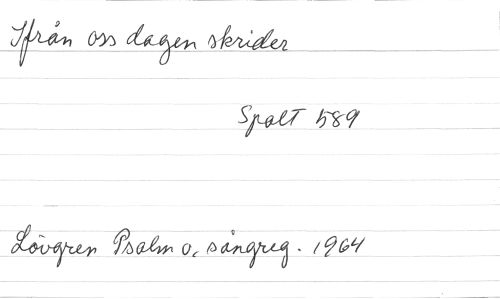 Ifrån oss dagen skrider
Spalt 589
Lövgren Psalm o. sångreg. 1964